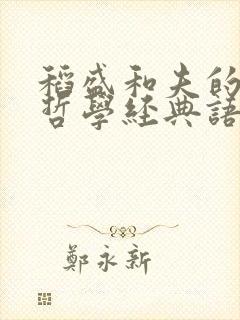 稻盛和夫的
哲學經典語
鄭永新